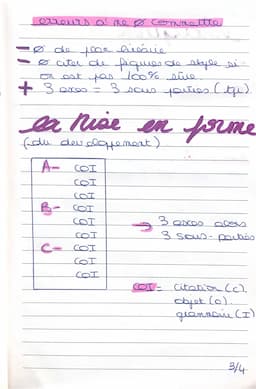 erreurs à ne ø commettre
- ø de
- ø citer de figures de style si
on est pas 100% sûre.
+ 3 axes = 3 sous parties (tjr)
la mise en forme
(du developpement)
A- COI
COI
COI
B- COI
COI
COI
C- COI
COI
COI
→ 3 axes alors
3 sous-parties
COI = citation (C).
objet (O).
grammaire (I)
3/4